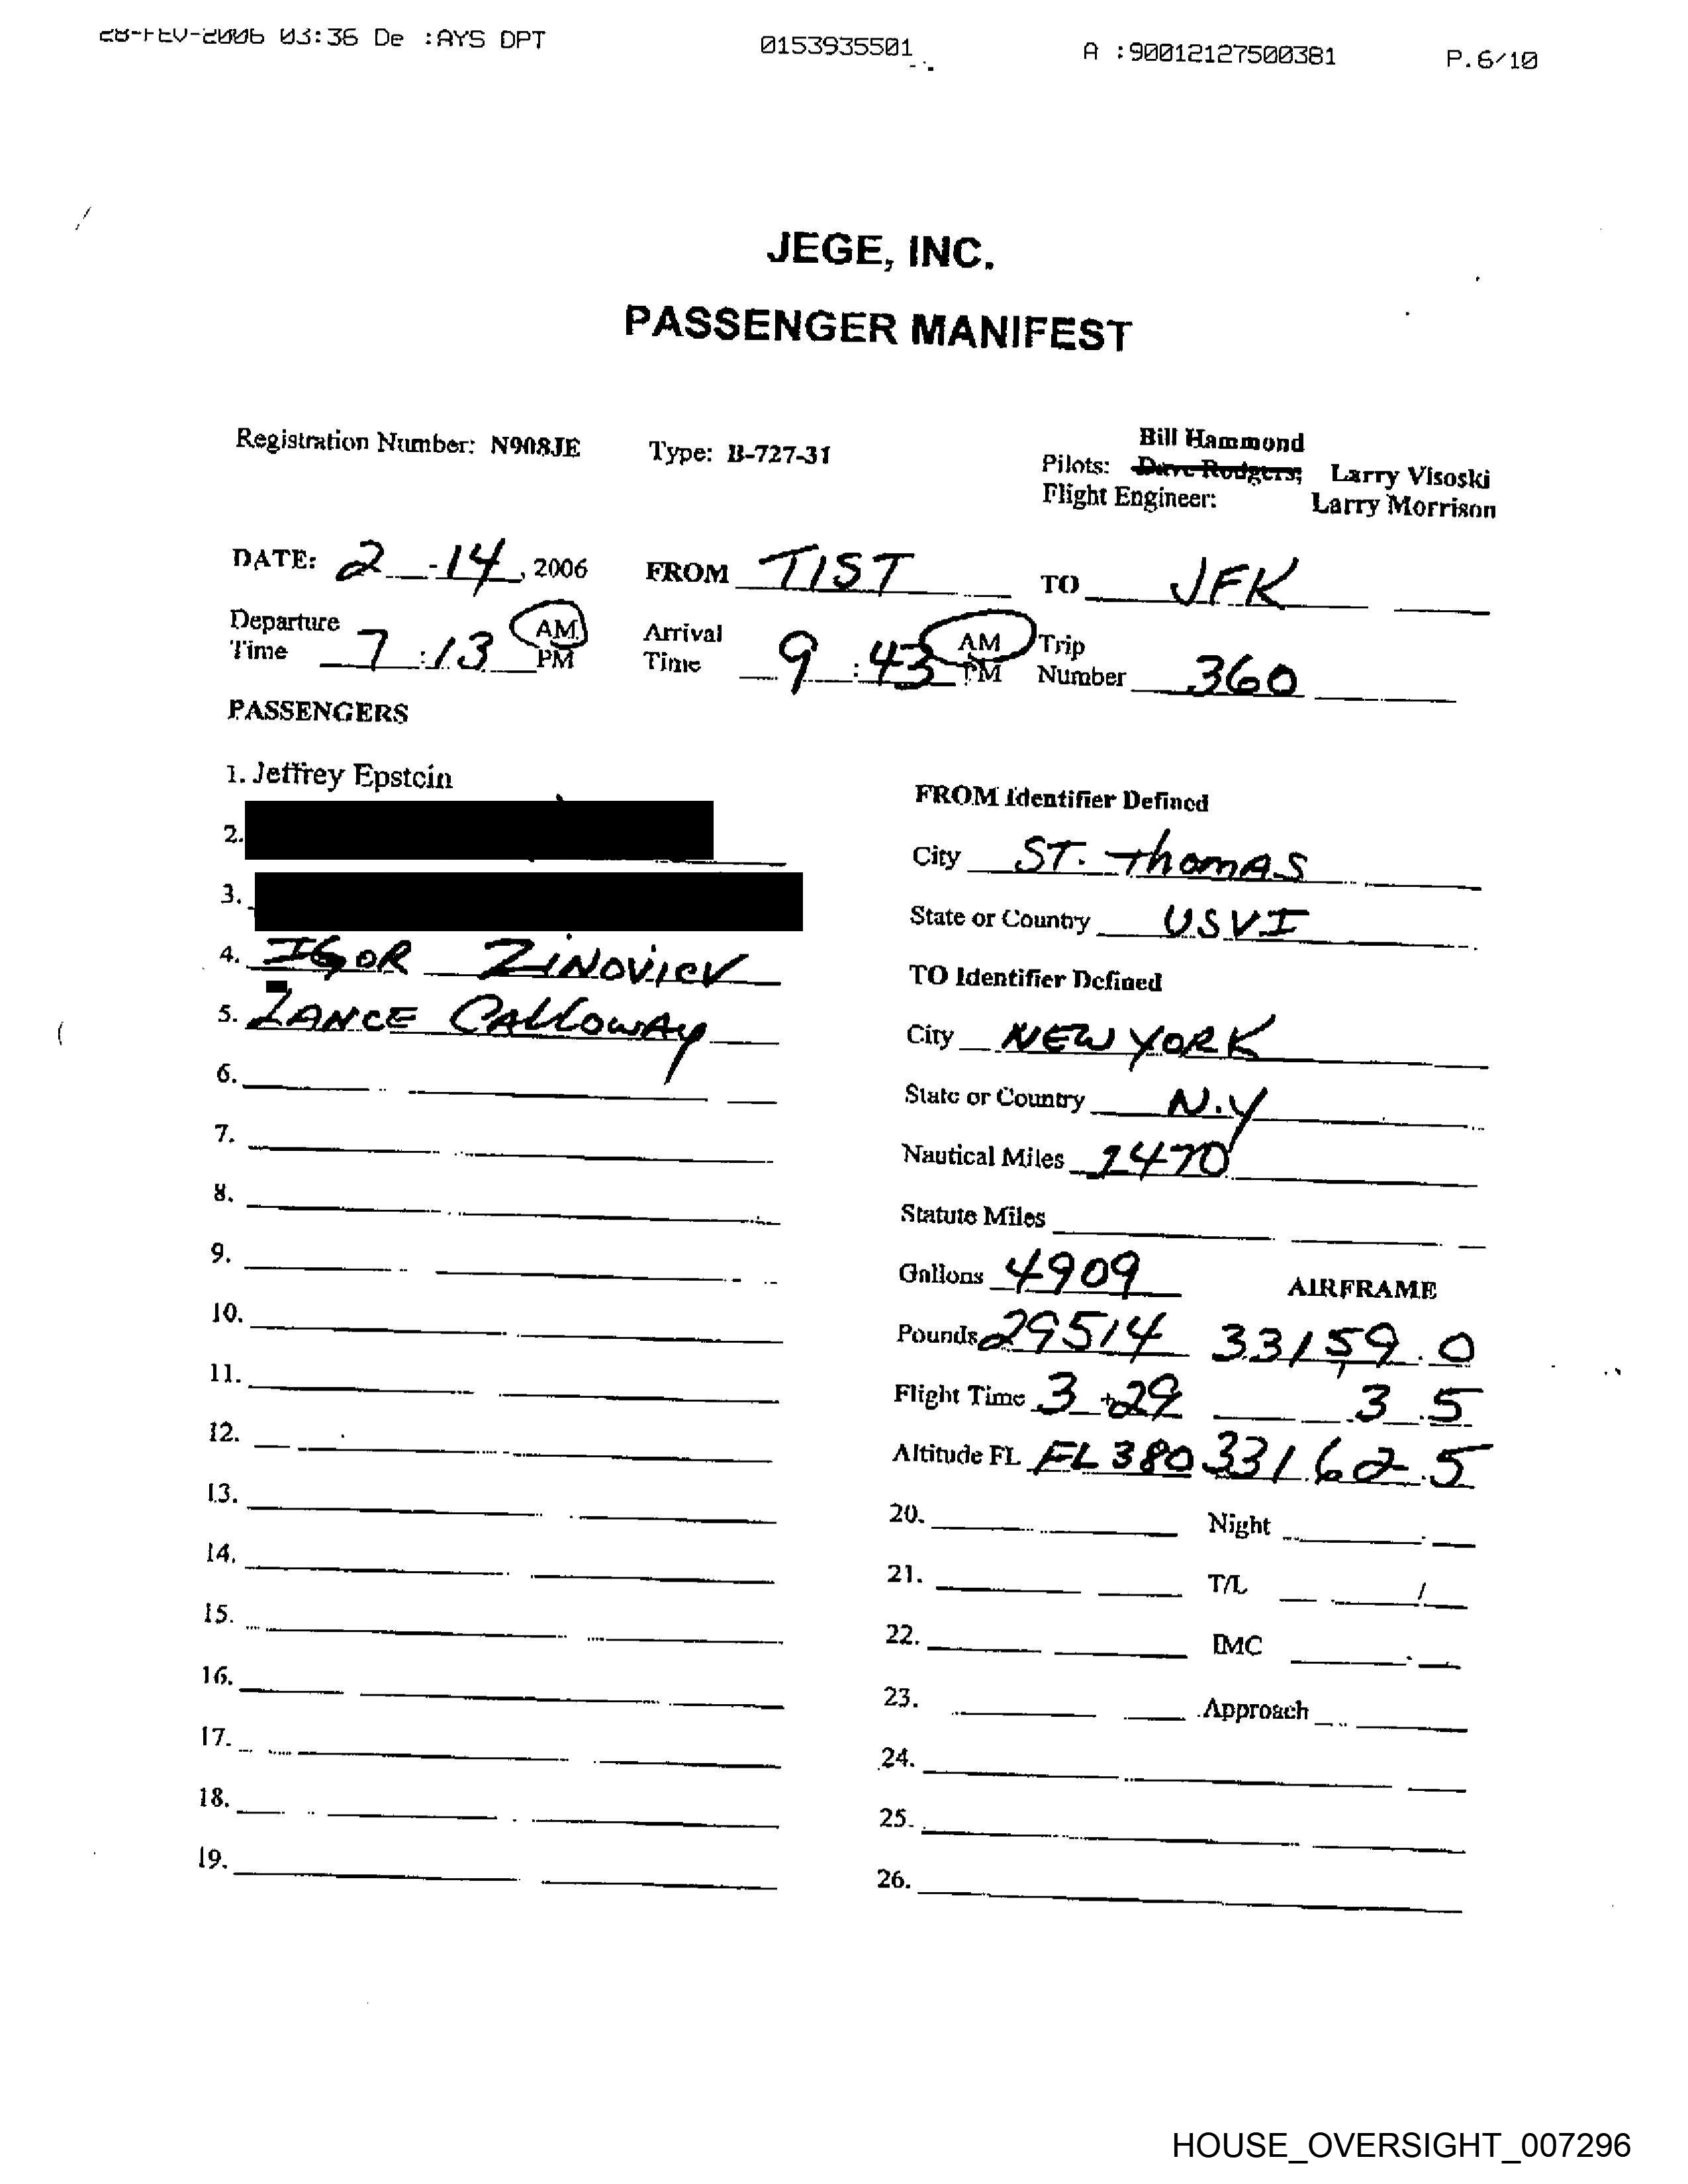 28-FEV-2006 03:36 De :AYS DPT 0153935501 A :90012127500381 P.6/10
JEGE, INC.
PASSENGER MANIFEST
Registration Number: N908JE Type: B-727-31
Bill Hammond
Pilots: Dave Rodgers; Larry Visoski
Flight Engineer: Larry Morrison
DATE: 2 - 14, 2006 FROM TIST TO JFK
Departure Time 7:13 AM PM Arrival Time 9:43 AM PM Trip Number 360
PASSENGERS
1. Jeffrey Epstein
FROM Identifier Defined
2.
City ST. Thomas
3.
State or Country USVI
4. IGOR ZINOVIEV
TO Identifier Defined
5. LANCE CALLOWAY
City NEW YORK
6.
State or Country N.Y
7.
Nautical Miles 1470
8.
Statute Miles
9.
Gallons 4909 AIRFRAME
10.
Pounds 29514 33159.0
11.
Flight Time 3+29 3.5
12.
Altitude FL FL380 33162.5
13.
20. Night
14.
21. T/L /
15.
22. IMC
16.
23. Approach
17.
24.
18.
25.
19.
26.
HOUSE_OVERSIGHT_007296